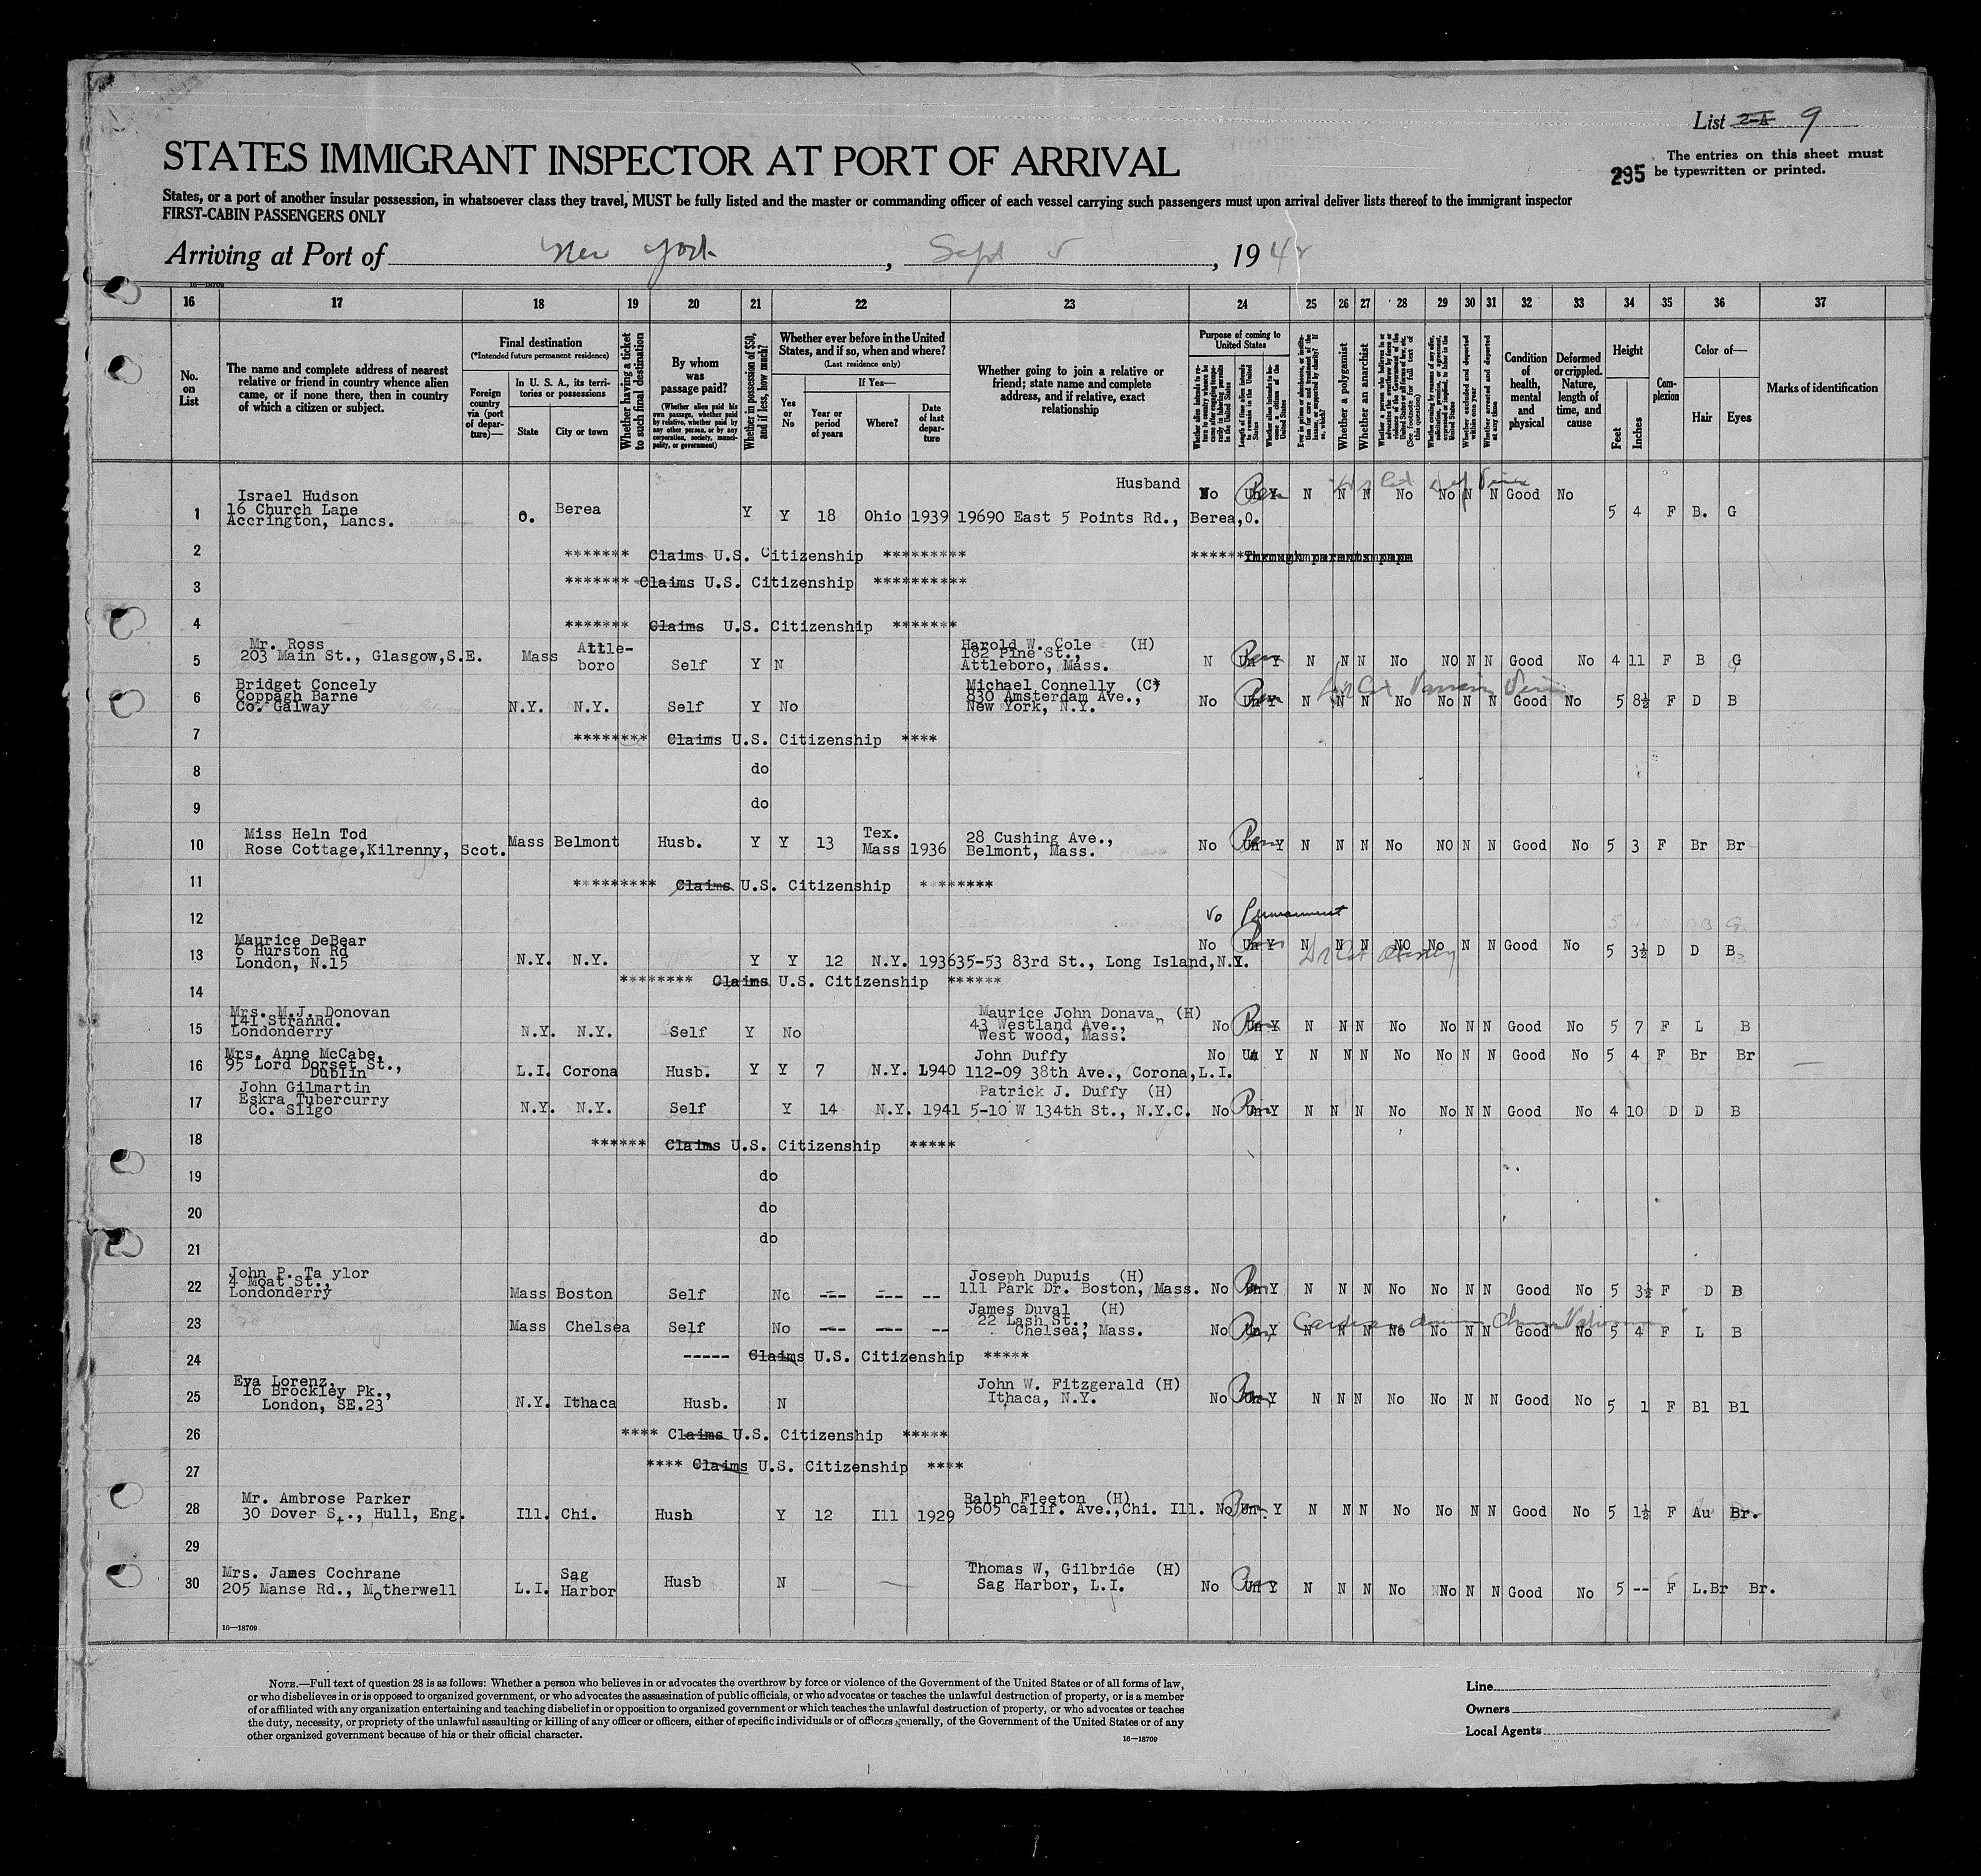 List 2-A 9
STATES IMMIGRANT INSPECTOR AT PORT OF ARRIVAL
295
The entries on this sheet must
be typewritten or printed.
States, or a port of another insular possession, in whatsoever class they travel, MUST be fully listed and the master or commanding officer of each vessel carrying such passengers must upon arrival deliver lists thereof to the immigrant inspector
FIRST-CABIN PASSENGERS ONLY
Arriving at Port of New York, Sept 5, 194
16—18709
16 17 18 19 20 21 22 23 24 25 26 27 28 29 30 31 32 33 34 35 36 37
No. on List
The name and complete address of nearest relative or friend in country whence alien came, or if none there, then in country of which a citizen or subject.
Final destination
(*Intended future permanent residence)
Foreign country via (port of departure)—
In U. S. A., its territories or possessions
State
City or town
Whether having a ticket to such final destination
By whom was passage paid?
(Whether alien paid his own passage, whether paid by relative, whether paid by any other person, or by any corporation, society, municipality, or government)
Whether in possession of $50, and if less, how much?
Whether ever before in the United States, and if so, when and where?
(Last residence only)
If Yes—
Yes or No
Year or period of years
Where?
Date of last departure
Whether going to join a relative or friend; state name and complete address, and if relative, exact relationship
Purpose of coming to United States
Length of time alien intends to remain in the United States
Whether alien intends to become a citizen of the United States
Whether a polygamist
Whether an anarchist
(See footnote for full text of this question)
Whether excluded and deported within one year
Whether arrested and deported at any time
Condition of health, mental and physical
Deformed or crippled. Nature, length of time, and cause
Height
Feet
Inches
Complexion
Color of—
Hair
Eyes
Marks of identification
1 Israel Hudson
16 Church Lane
Accrington, Lancs. O. Berea Y Y 18 Ohio 1939 Husband
19690 East 5 Points Rd., Berea,O. No Un Y N N N No No N N Good No 5 4 F B. G
2 ******* Claims U.S. Citizenship ********* ******
3 ******* Claims U.S. Citizenship **********
4 ******* Claims U.S. Citizenship *******
5 Mr. Ross
203 Main St., Glasgow,S.E. Mass Attle-
boro Self Y N Harold W. Cole (H)
182 Pine St.,
Attleboro, Mass. N Un Y N N N No NO N N Good No 4 11 F B G
6 Bridget Concely
Coppagh Barne
Co. Galway N.Y. N.Y. Self Y No Michael Connelly (C*
830 Amsterdam Ave.,
New York, N.Y. No Un Y N N N No No N N Good No 5 8½ F D B
7 ******** Claims U.S. Citizenship ****
8 do
9 do
10 Miss Heln Tod
Rose Cottage,Kilrenny, Scot. Mass Belmont Husb. Y Y 13 Tex.
Mass 1936 28 Cushing Ave.,
Belmont, Mass. No Un Y N N N No NO N N Good No 5 3 F Br Br
11 ********* Claims U.S. Citizenship ********
12 No Permanent
13 Maurice DeBear
6 Hurston Rd
London, N.15 N.Y. N.Y. Y Y 12 N.Y. 1936 35-53 83rd St., Long Island,N.Y. No Un Y N N N NO No N N Good No 5 3½ D D B
14 ******** Claims U.S. Citizenship ******
15 Mrs. M.J. Donovan
141 StranRd.
Londonderry N.Y. N.Y. Self Y No Maurice John Donava, (H)
43 Westland Ave., "
West wood, Mass. No Un Y N N N No No N N Good No 5 7 F L B
16 Mrs. Anne McCabe,
95 Lord Dorset St.,
Dublin L.I. Corona Husb. Y Y 7 N.Y. 1940 John Duffy
112-09 38th Ave., Corona,L.I. No Un Y N N N No No N N Good No 5 4 F Br Br
17 John Gilmartin
Eskra Tubercurry
Co. Sligo N.Y. N.Y. Self Y 14 N.Y. 1941 Patrick J. Duffy (H)
5-10 W 134th St., N.Y.C. No Un Y N N N No No N N Good No 4 10 D D B
18 ****** Claims U.S. Citizenship *****
19 do
20 do
21 do
22 John P. Ta ylor
4 Moat St.,
Londonderry Mass Boston Self No --- --- -- Joseph Dupuis (H)
111 Park Dr. Boston, Mass. No Un Y N N N No No N N Good No 5 3½ F D B
23 Mass Chelsea Self No --- --- -- James Duval (H)
22 Lash St.,
Chelsea, Mass. No Un Y N N N No No N N Good No 5 4 F L B
24 ----- Claims U.S. Citizenship *****
25 Eva Lorenz,
16 Brockley Pk.,
London, SE.23 N.Y. Ithaca Husb. N John W. Fitzgerald (H)
Ithaca, N.Y. No Un Y N N N No No N N Good No 5 1 F Bl Bl
26 **** Claims U.S. Citizenship *****
27 **** Claims U.S. Citizenship ****
28 Mr. Ambrose Parker
30 Dover St., Hull, Eng. Ill. Chi. Husb Y 12 Ill 1929 Ralph Fleeton (H)
5605 Calif. Ave.,Chi. Ill. No Un Y N N N No No N N Good No 5 1½ F Au Br.
29
30 Mrs. James Cochrane
205 Manse Rd., Motherwell L.I. Sag
Harbor Husb N Thomas W, Gilbride (H)
Sag Harbor, L.I. No Un Y N N N No No N N Good No 5 -- F L.Br Br.
16—18709
NOTE.—Full text of question 28 is as follows: Whether a person who believes in or advocates the overthrow by force or violence of the Government of the United States or of all forms of law,
or who disbelieves in or is opposed to organized government, or who advocates the assassination of public officials, or who advocates or teaches the unlawful destruction of property, or is a member
of or affiliated with any organization entertaining and teaching disbelief in or opposition to organized government or which teaches the unlawful destruction of property, or who advocates or teaches
the duty, necessity, or propriety of the unlawful assaulting or killing of any officer or officers, either of specific individuals or of officers generally, of the Government of the United States or of any
other organized government because of his or their official character.
16—18709
Line
Owners
Local Agents